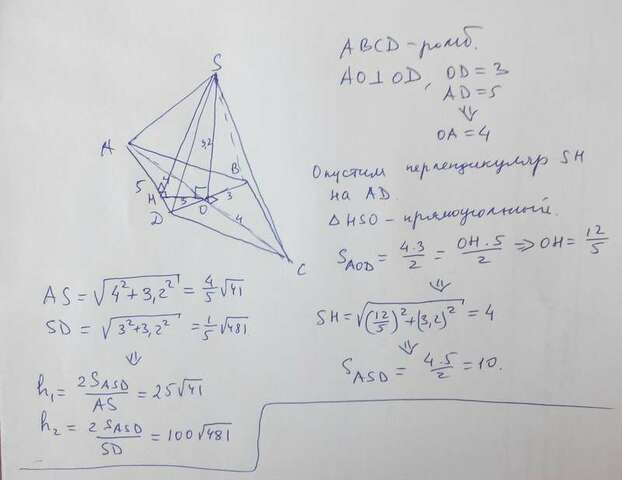 S
3,2
A
B
5
H
3
3
D
O
4
C
ABCD - ромб.
AO⊥OD, OD = 3
AD = 5
⇓
OA = 4
Опустим перпендикуляр SH
на AD.
△HSO - прямоугольный.
S_AOD = 4·3/2 = OH·5/2 ⇒ OH = 12/5
⇓
SH = √((12/5)² + (3,2)²) = 4
⇓
S_ASD = 4·5/2 = 10.
AS = √(4² + 3,2²) = 4/5 √41
SD = √(3² + 3,2²) = 1/5 √481
⇓
h₁ = 2S_ASD/AS = 25√41
h₂ = 2S_ASD/SD = 100√481